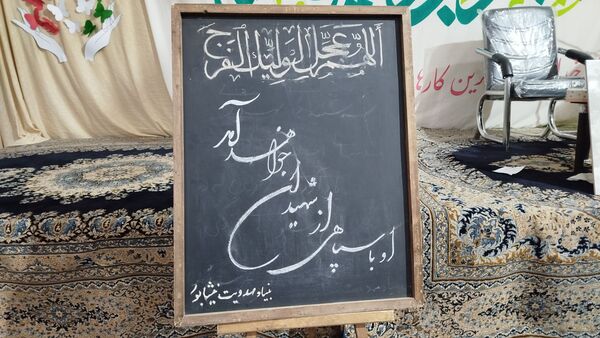 اللهم عجل لولیک الفرج
او با سپاهی از شهیدان خواهد آمد
بنیاد مهدویت نیشابور
رین کارها